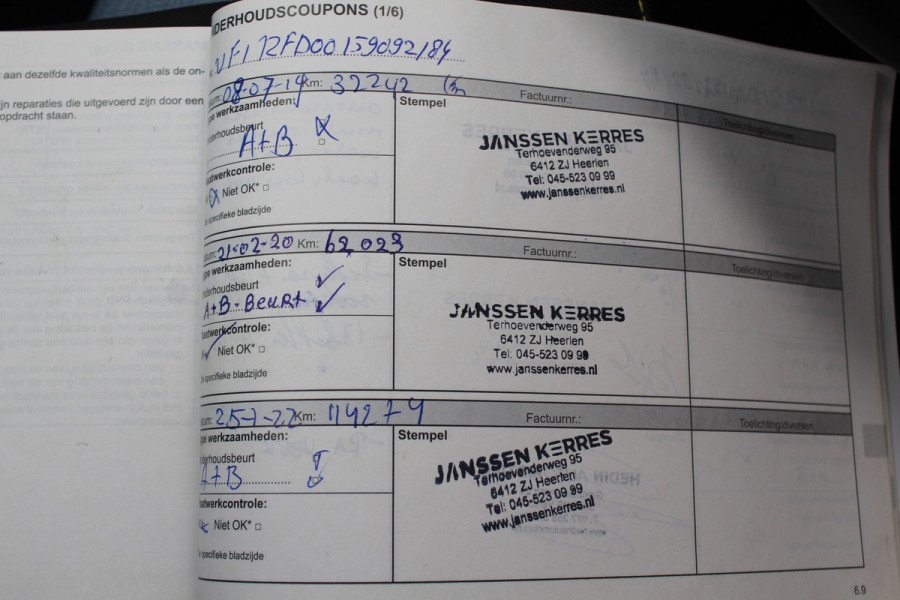 aan dezelfde kwaliteitsnormen als de on-
jn reparaties die uitgevoerd zijn door een
opdracht staan.
DERHOUDSCOUPONS (1/6)
VF1RFD00159092184
08-07-19 Km: 32242
Factuurnr.:
Toelichting/diversen
pe werkzaamheden:
derhoudsbeurt
A+B
Stempel
JANSSEN KERRES
Terhoevenderweg 95
6412 ZJ Heerlen
Tel: 045-523 09 99
www.janssenkerres.nl
aatwerkcontrole:
Niet OK*
e specifieke bladzijde
21-02-20 Km: 62.023
Factuurnr.:
Toelichting/diversen
pe werkzaamheden:
derhoudsbeurt
A+B-Beurt
Stempel
JANSSEN KERRES
Terhoevenderweg 95
6412 ZJ Heerlen
Tel: 045-523 09 99
www.janssenkerres.nl
aatwerkcontrole:
Niet OK*
e specifieke bladzijde
tum: 25-7-22 Km: 114274
Factuurnr.:
Toelichting/diversen
pe werkzaamheden:
derhoudsbeurt
A+B
Stempel
JANSSEN KERRES
Terhoevenderweg 95
6412 ZJ Heerlen
Tel: 045-523 09 99
www.janssenkerres.nl
aatwerkcontrole:
Niet OK*
e specifieke bladzijde
6.9